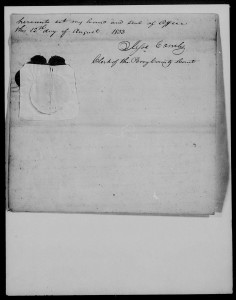 hereunto set my hand and seal of office
this 12th day of August 1833
Clerk of the County Court